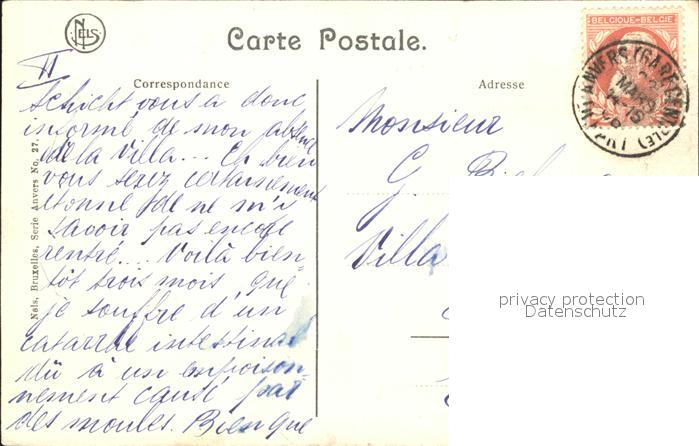 NELS
BELGIQUE-BELGIE
Carte Postale.
ANVERS (GARE CENTRALE)
MARS
II
Correspondance
Adresse
Schicht vous a donc
informé de mon absence
de la Villa... Eh bien
vous serez certainement
étonné de ne m'y
savoir pas encore
rentré... Voilà bien-
tôt trois mois que
je souffre d'un
catarrhe intestinal
dû à un empoison-
nement causé par
des moules. Bien que
Nels, Bruxelles, Serie Anvers No. 27.
Monsieur
G.
Villa
privacy protection
Datenschutz